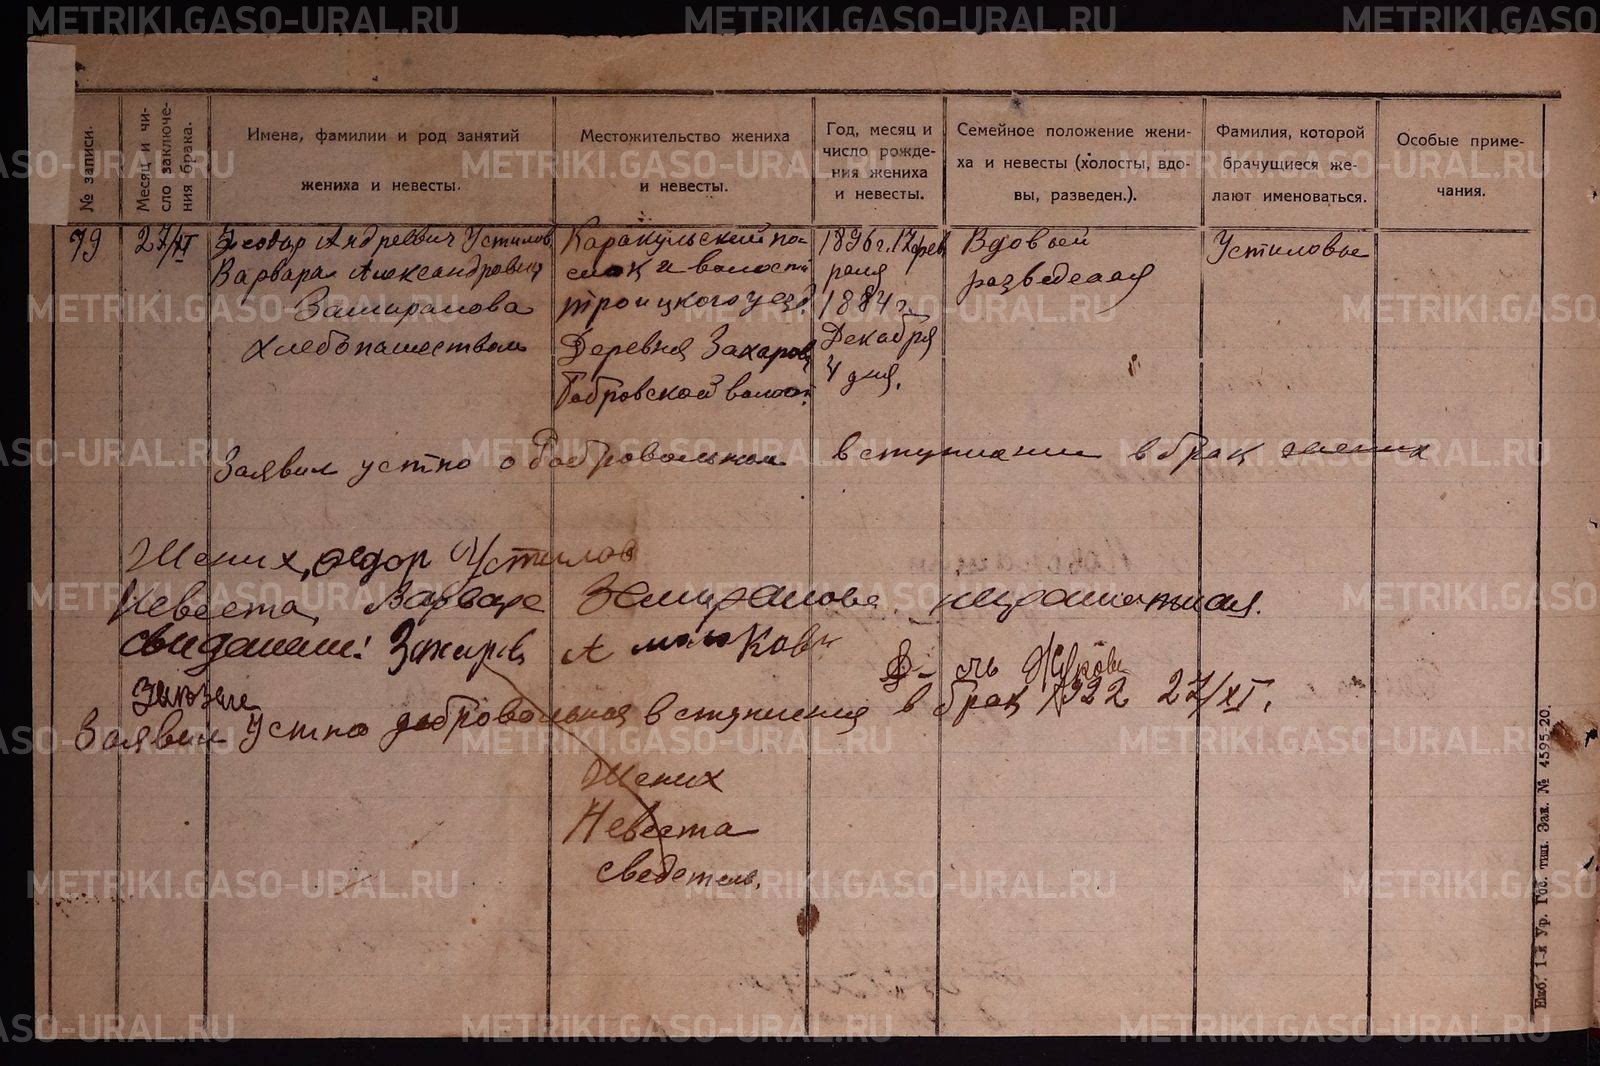 METRIKI.GASO-URAL.RU
№ записи.
Месяц и чи-
сло заключе-
ния брака.
Имена, фамилии и род занятий
жениха и невесты.
Местожительство жениха
и невесты.
Год, месяц и
число рожде-
ния жениха
и невесты.
Семейное положение жени-
ха и невесты (холосты, вдо-
вы, разведен.).
Фамилия, которой
брачущиеся же-
лают именоваться.
Особые приме-
чания.
79
27/XI
Феодор Андреевич Устилов
Варвара Александровна
Хлебопашеством
Каракульский по-
селок и волости
троицкого уезд.
Деревня Захаров
Бобровской волост.
1896 г. 17 фев
раля
1884 г.
Декабря
4 дня.
Вдовый
разведеная
Устиловы
Заявил устно о добровольном вступлении в брак
Жених, Федор Устилов
Невеста Варвара неграмотная.
Свидетели: Захаров А
Заявил устно добровольная вступления в брак 1922 27/XI.
Жених
Невеста
сведетель.
Екб. 1-я Ур. Гос. тип. Зак. № 4595-20.